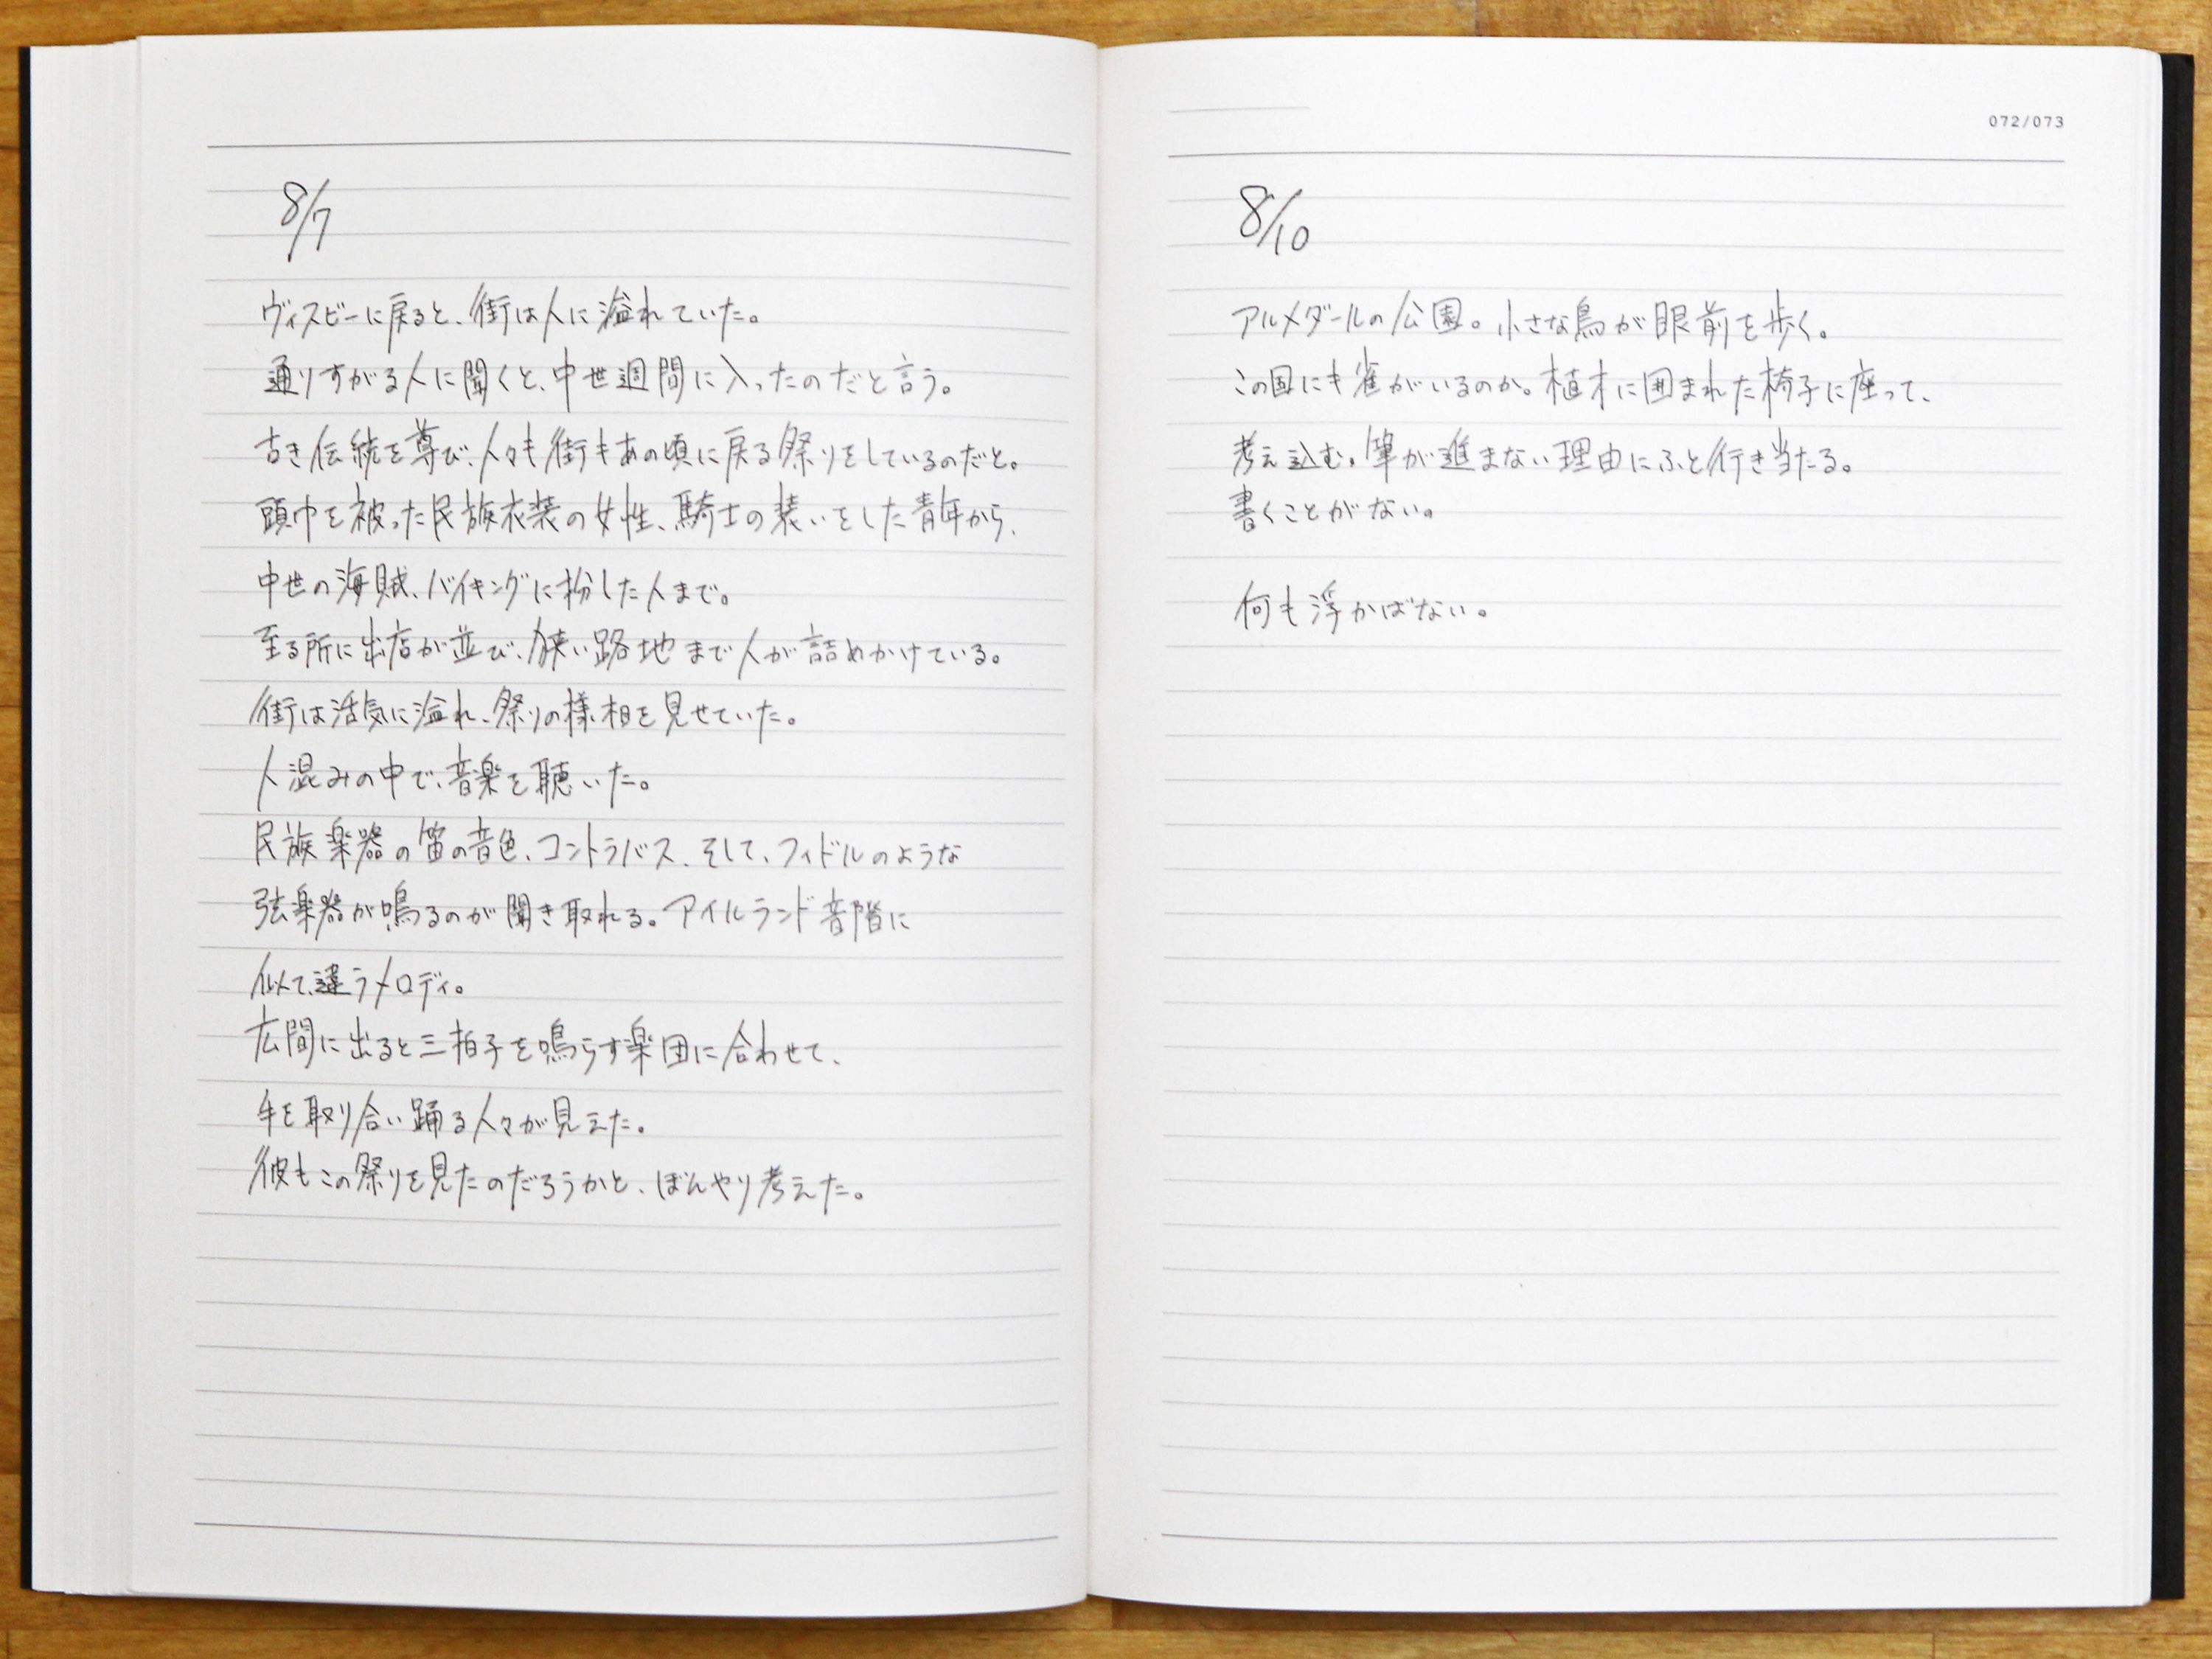 8/7
ヴィスビーに戻ると、街は人に溢れていた。
通りすがる人に聞くと、中世週間に入ったのだと言う。
古き伝統を尊び、人々も街もあの頃に戻る祭りをしているのだと。
頭巾を被った民族衣装の女性、騎士の装いをした青年から、
中世の海賊、バイキングに扮した人まで。
至る所に出店が並び、狭い路地まで人が詰めかけている。
街は活気に溢れ、祭りの様相を見せていた。
人混みの中で、音楽を聴いた。
民族楽器の笛の音色、コントラバス、そして、フィドルのような
弦楽器が鳴るのが聞き取れる。アイルランド音階に
似て、違うメロディ。
広間に出ると三拍子を鳴らす楽団に合わせて、
手を取り合い踊る人々が見えた。
彼もこの祭りを見たのだろうかと、ぼんやり考えた。
072/073
8/10
アルメダールの公園。小さな鳥が眼前を歩く。
この国にも雀がいるのか。植木に囲まれた椅子に座って、
考え込む。筆が進まない理由にふと行き当たる。
書くことがない。
何も浮かばない。